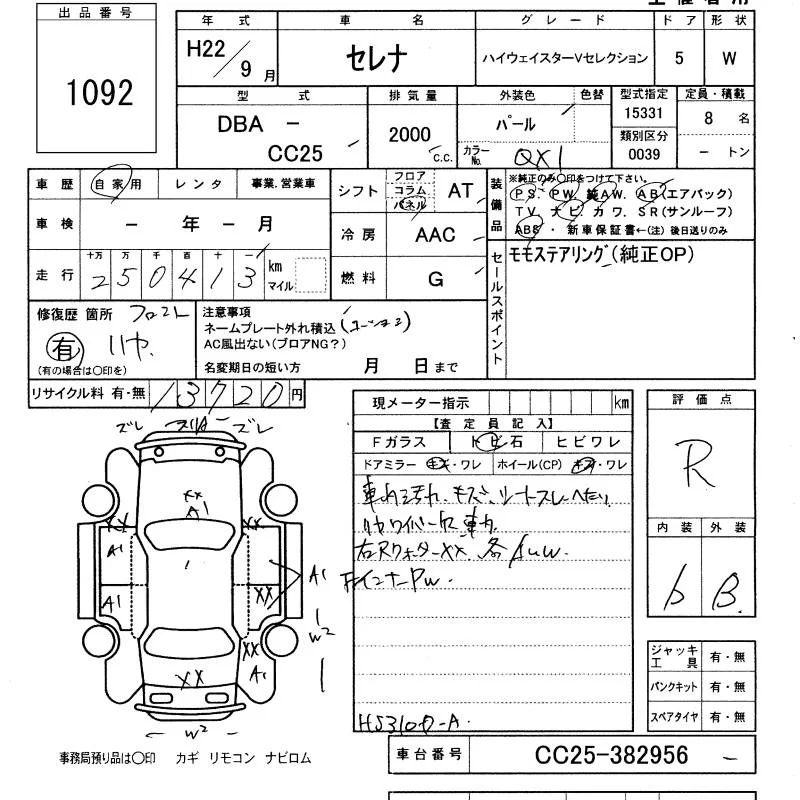 出品番号
1092
年式 車名 グレード ドア 形状
H22/9月 セレナ ハイウェイスターVセレクション 5 W
型式 排気量 外装色 色替 型式指定 定員・積載
DBA - CC25 2000 c.c. パール 15331 8 名
カラーNo. QX1 類別区分 0039 - トン
車歴 自家用 レンタ 事業.営業車
シフト フロア コラム パネル AT
車検 - 年 - 月
冷房 AAC
走行 十万 万 千 百 十 一
250413 km マイル
燃料 G
装備品 ※純正のみ○印をつけて下さい。
PS. PW. 純AW. AB(エアバック)
TV. ナビ. カワ. SR(サンルーフ)
ABS ・ 新車保証書←(注) 後日送りのみ
セールスポイント
モモステアリング(純正OP)
修復歴 箇所 フロント
有 リヤ.
(有の場合は○印を)
注意事項
ネームプレート外れ積込
AC風出ない(ブロアNG?)
名変期日の短い方 月 日まで
リサイクル料 有・無 13720円
ズレ ズレ
XX
A1
XX XX
A1
A1
A1
XX
W2
XX
A1
XX
W2
事務局預り品は○印 カギ リモコン ナビロム
現メーター指示 km
【査定員記入】
Fガラス トビ石 ヒビワレ
ドアミラー キズ・ワレ ホイール(CP) キズ・ワレ
車内汚れ、キズ、シートスレ・へたり
リヤワイパー欠 車内
右Rクォーター XX. 各AUW.
FインナーPW.
HS310D-A.
評価点
R
内装 外装
b B.
ジャッキ工具 有・無
パンクキット 有・無
スペアタイヤ 有・無
車台番号 CC25-382956